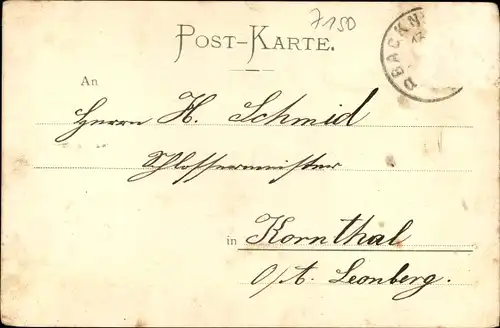 7150
POST-KARTE.
BACKN
An
Herrn H. Schmid
Schlossermeister
in Kornthal
O/A. Leonberg.